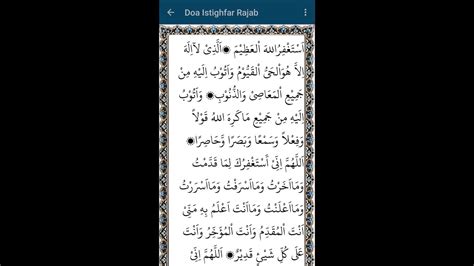 Doa Istighfar Rajab
اَسْتَغْفِرُاللهَ الْعَظِيْمَ ۞ اَلَّذِىْ لَآاِلٰهَ
اِلاَّ هُوَالْحَىُّ الْقَيُّوْمُ وَاَتُوْبُ اِلَيْهِ مِنْ
جَمِيْعِ الْمَعَاصِىْ وَالذُّنُوْبِ ۞ وَاَتُوْبُ
اِلَيْهِ مِنْ جَمِيْعِ مَاكَرِهَ اللهُ قَوْلاً
وَفِعْلاً وَسَمْعًا وَبَصَرًا وَّحَاصِرًا ۞
اَللّٰهُمَّ اِنِّىْ اَسْتَغْفِرُكَ لِمَا قَدَّمْتُ
وَمَااَخَّرْتُ وَمَااَسْرَفْتُ وَمَااَسْرَرْتُ
وَمَااَعْلَنْتُ وَمَااَنْتَ اَعْلَمُ بِهِ مِنِّىْ
اَنْتَ الْمُقَدِّمُ وَاَنْتَ الْمُؤَخِّرُ وَاَنْتَ
عَلَى كُلِّ شَيْئٍ قَدِيْرٌ ۞ اَللّٰهُمَّ اِنِّىْ